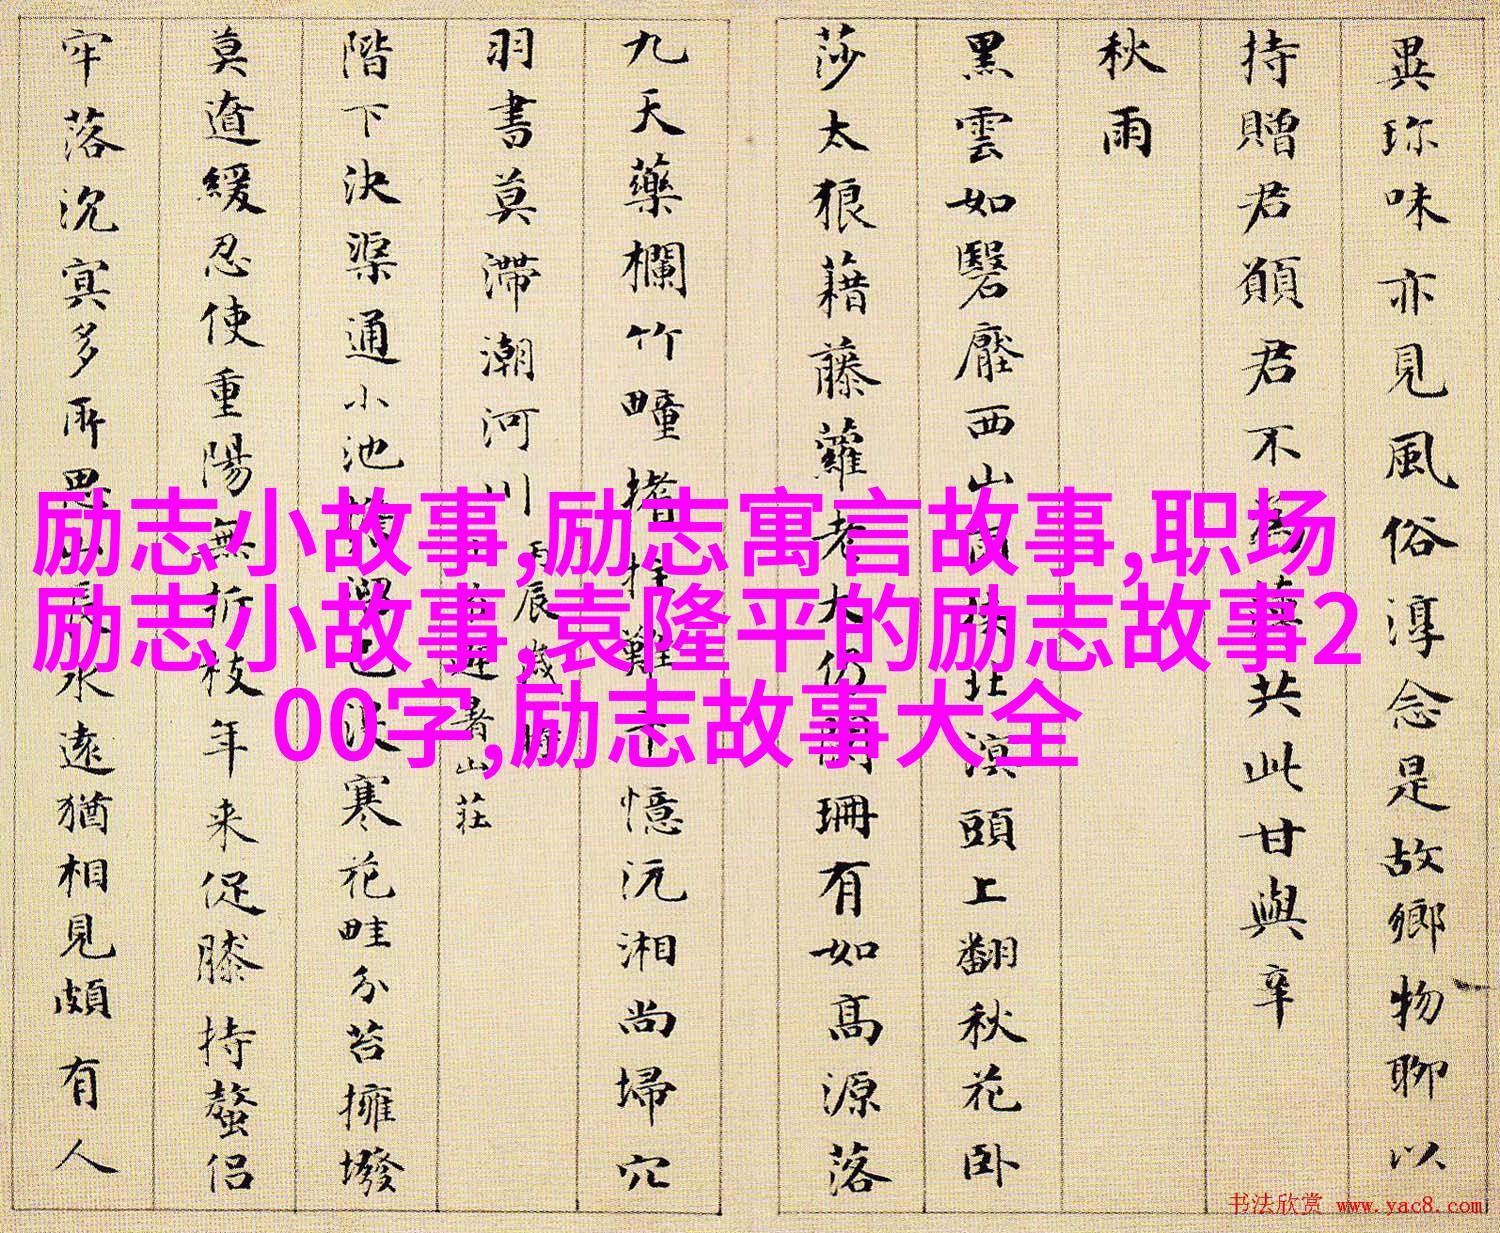 異珎味亦見風俗淳念是故鄉物聊以
持贈君願君不為共此甘與辛
秋雨
黑雲如翳壓西山北溟頭上翻秋花卧
莎太狼藉藤蘿老大仍闌珊有如高源落
九天藥欄竹疃難憶沅湘尚埽穴
羽書莫滯潮河川丙辰歲
山莊
階下決渠通小池寒花畦分苔擁墢
莫遒緩忍使重陽無折枝年来促膝持螯侣
牢落沉冥多所思永遠猶相見頗有人
励志小故事,励志寓言故事,职场
励志小故事,袁隆平的励志故事2
00字,励志故事大全
书法欣赏 www.yac8.com